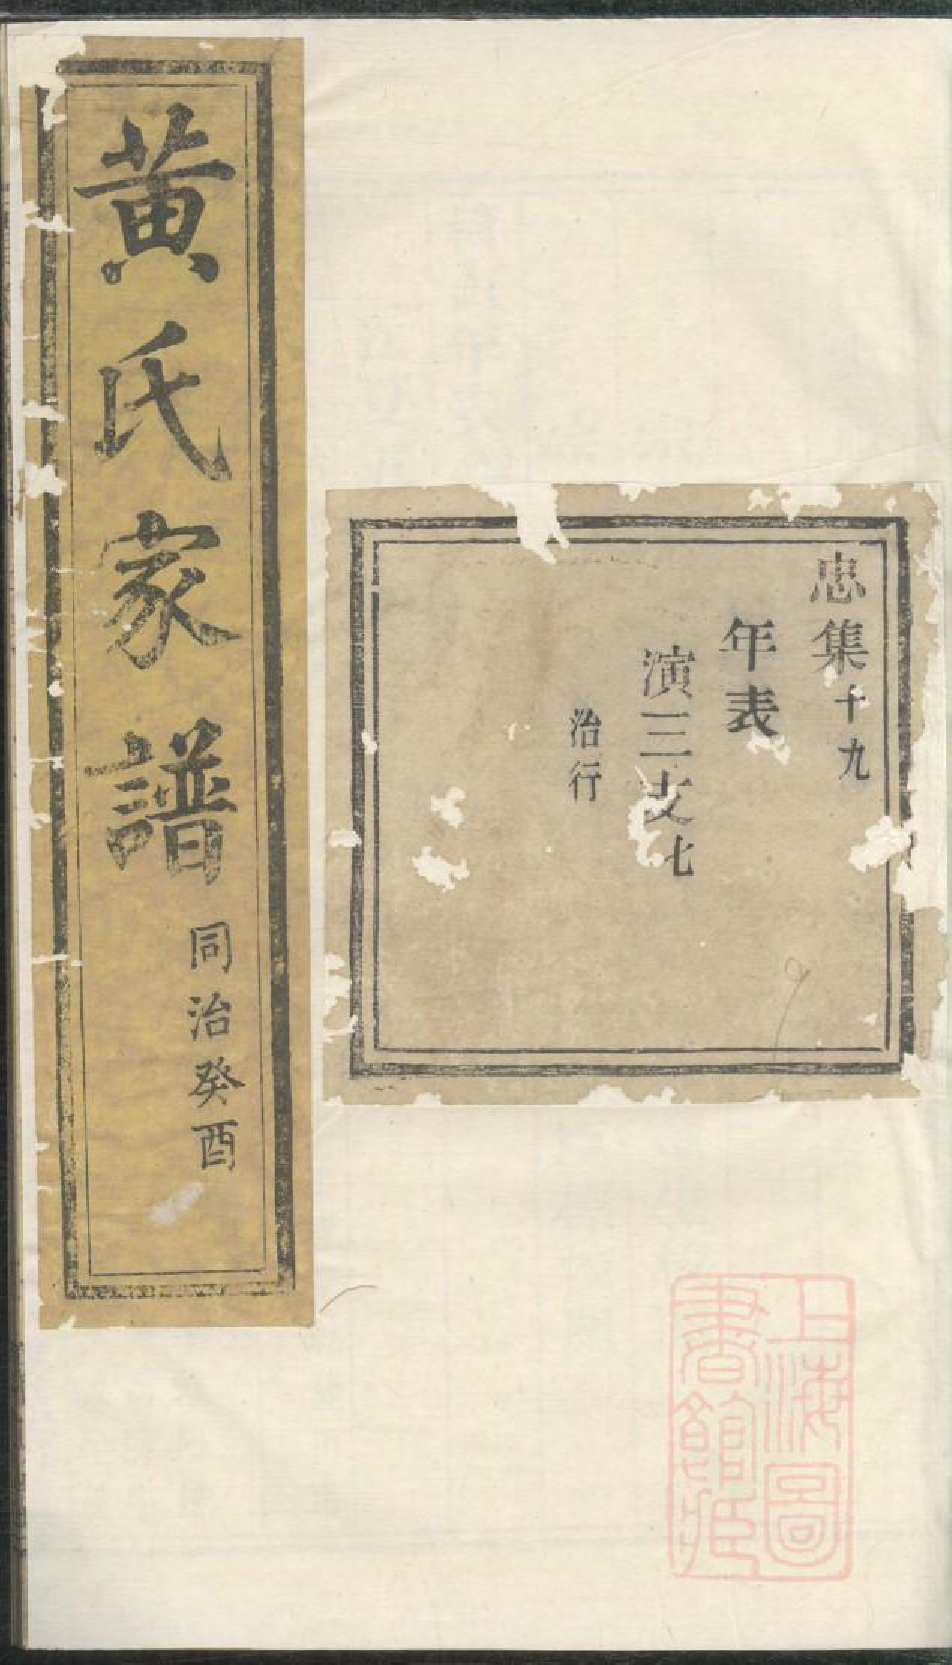 忠集十九
年表
演三支七
治行
黃氏家譜
同治癸酉
上海圖
書館藏